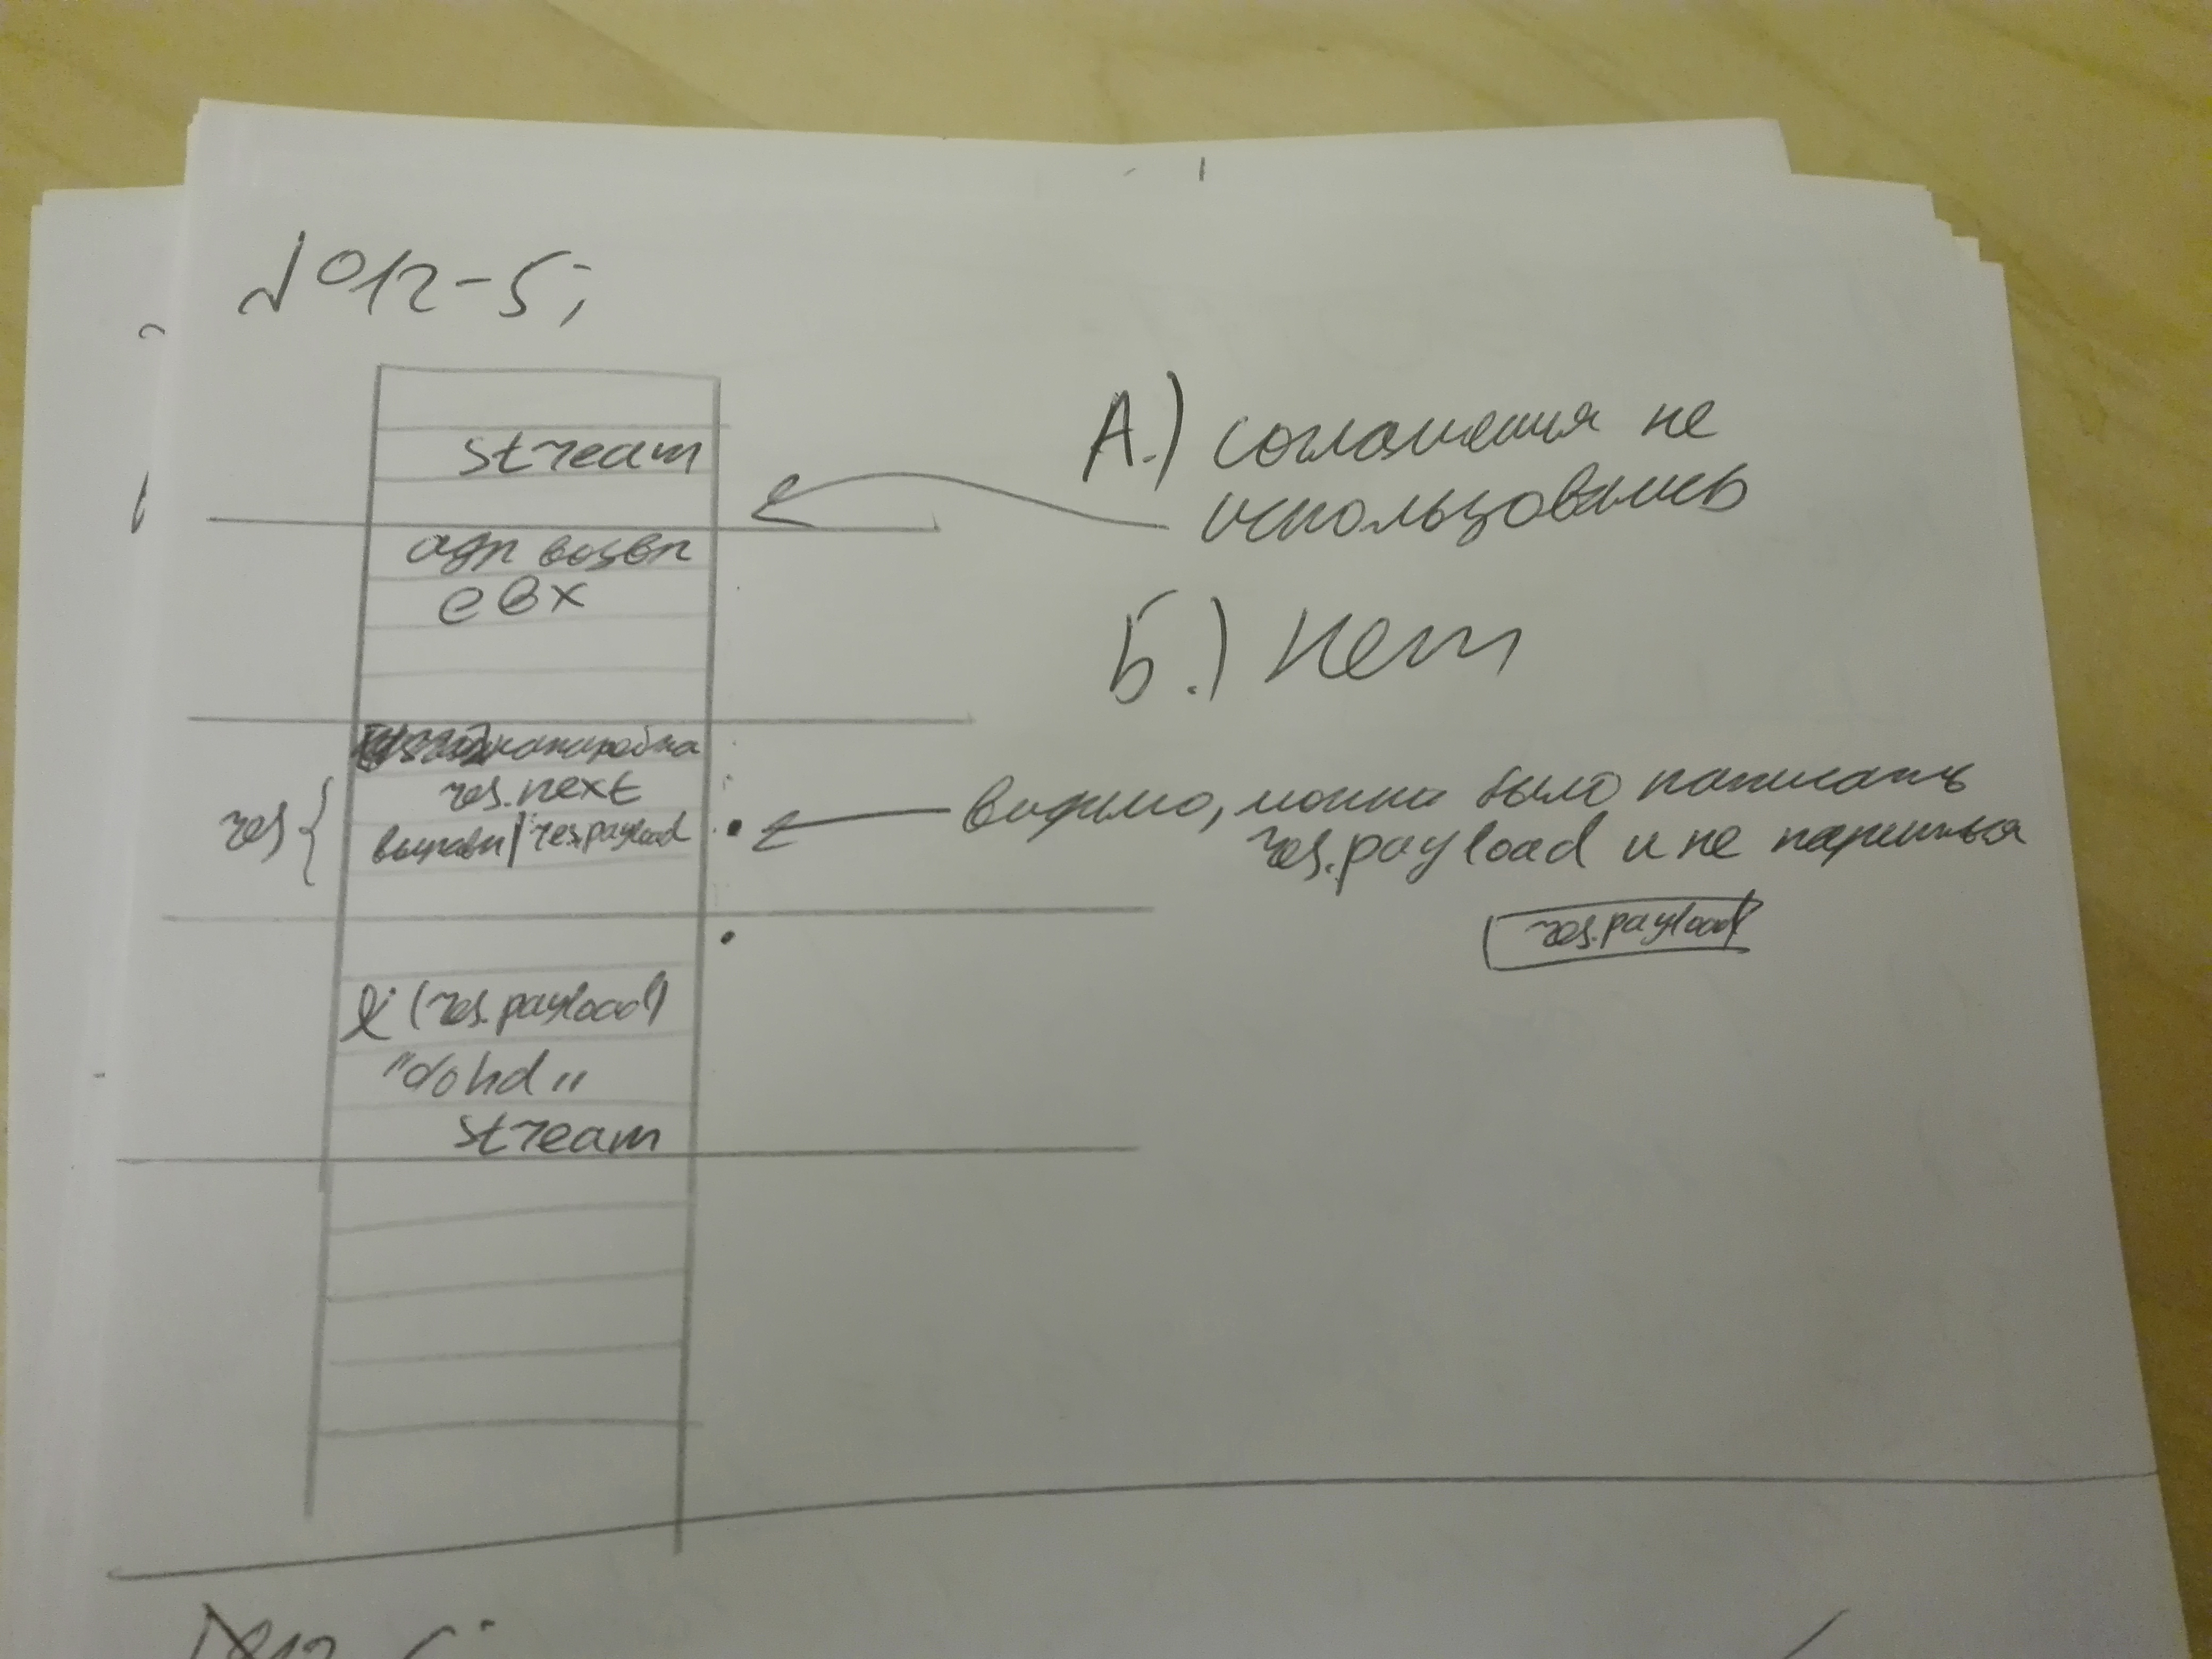 №12-5;
stream
адр возвр
ebx
канарейка
res.next
res {
выравн | res.payload
&(res.payload)
"%hd"
stream
А.) соглашения не
использовались
Б.) Нет
видимо, можно было написать
res.payload и не париться
res.payload
№12